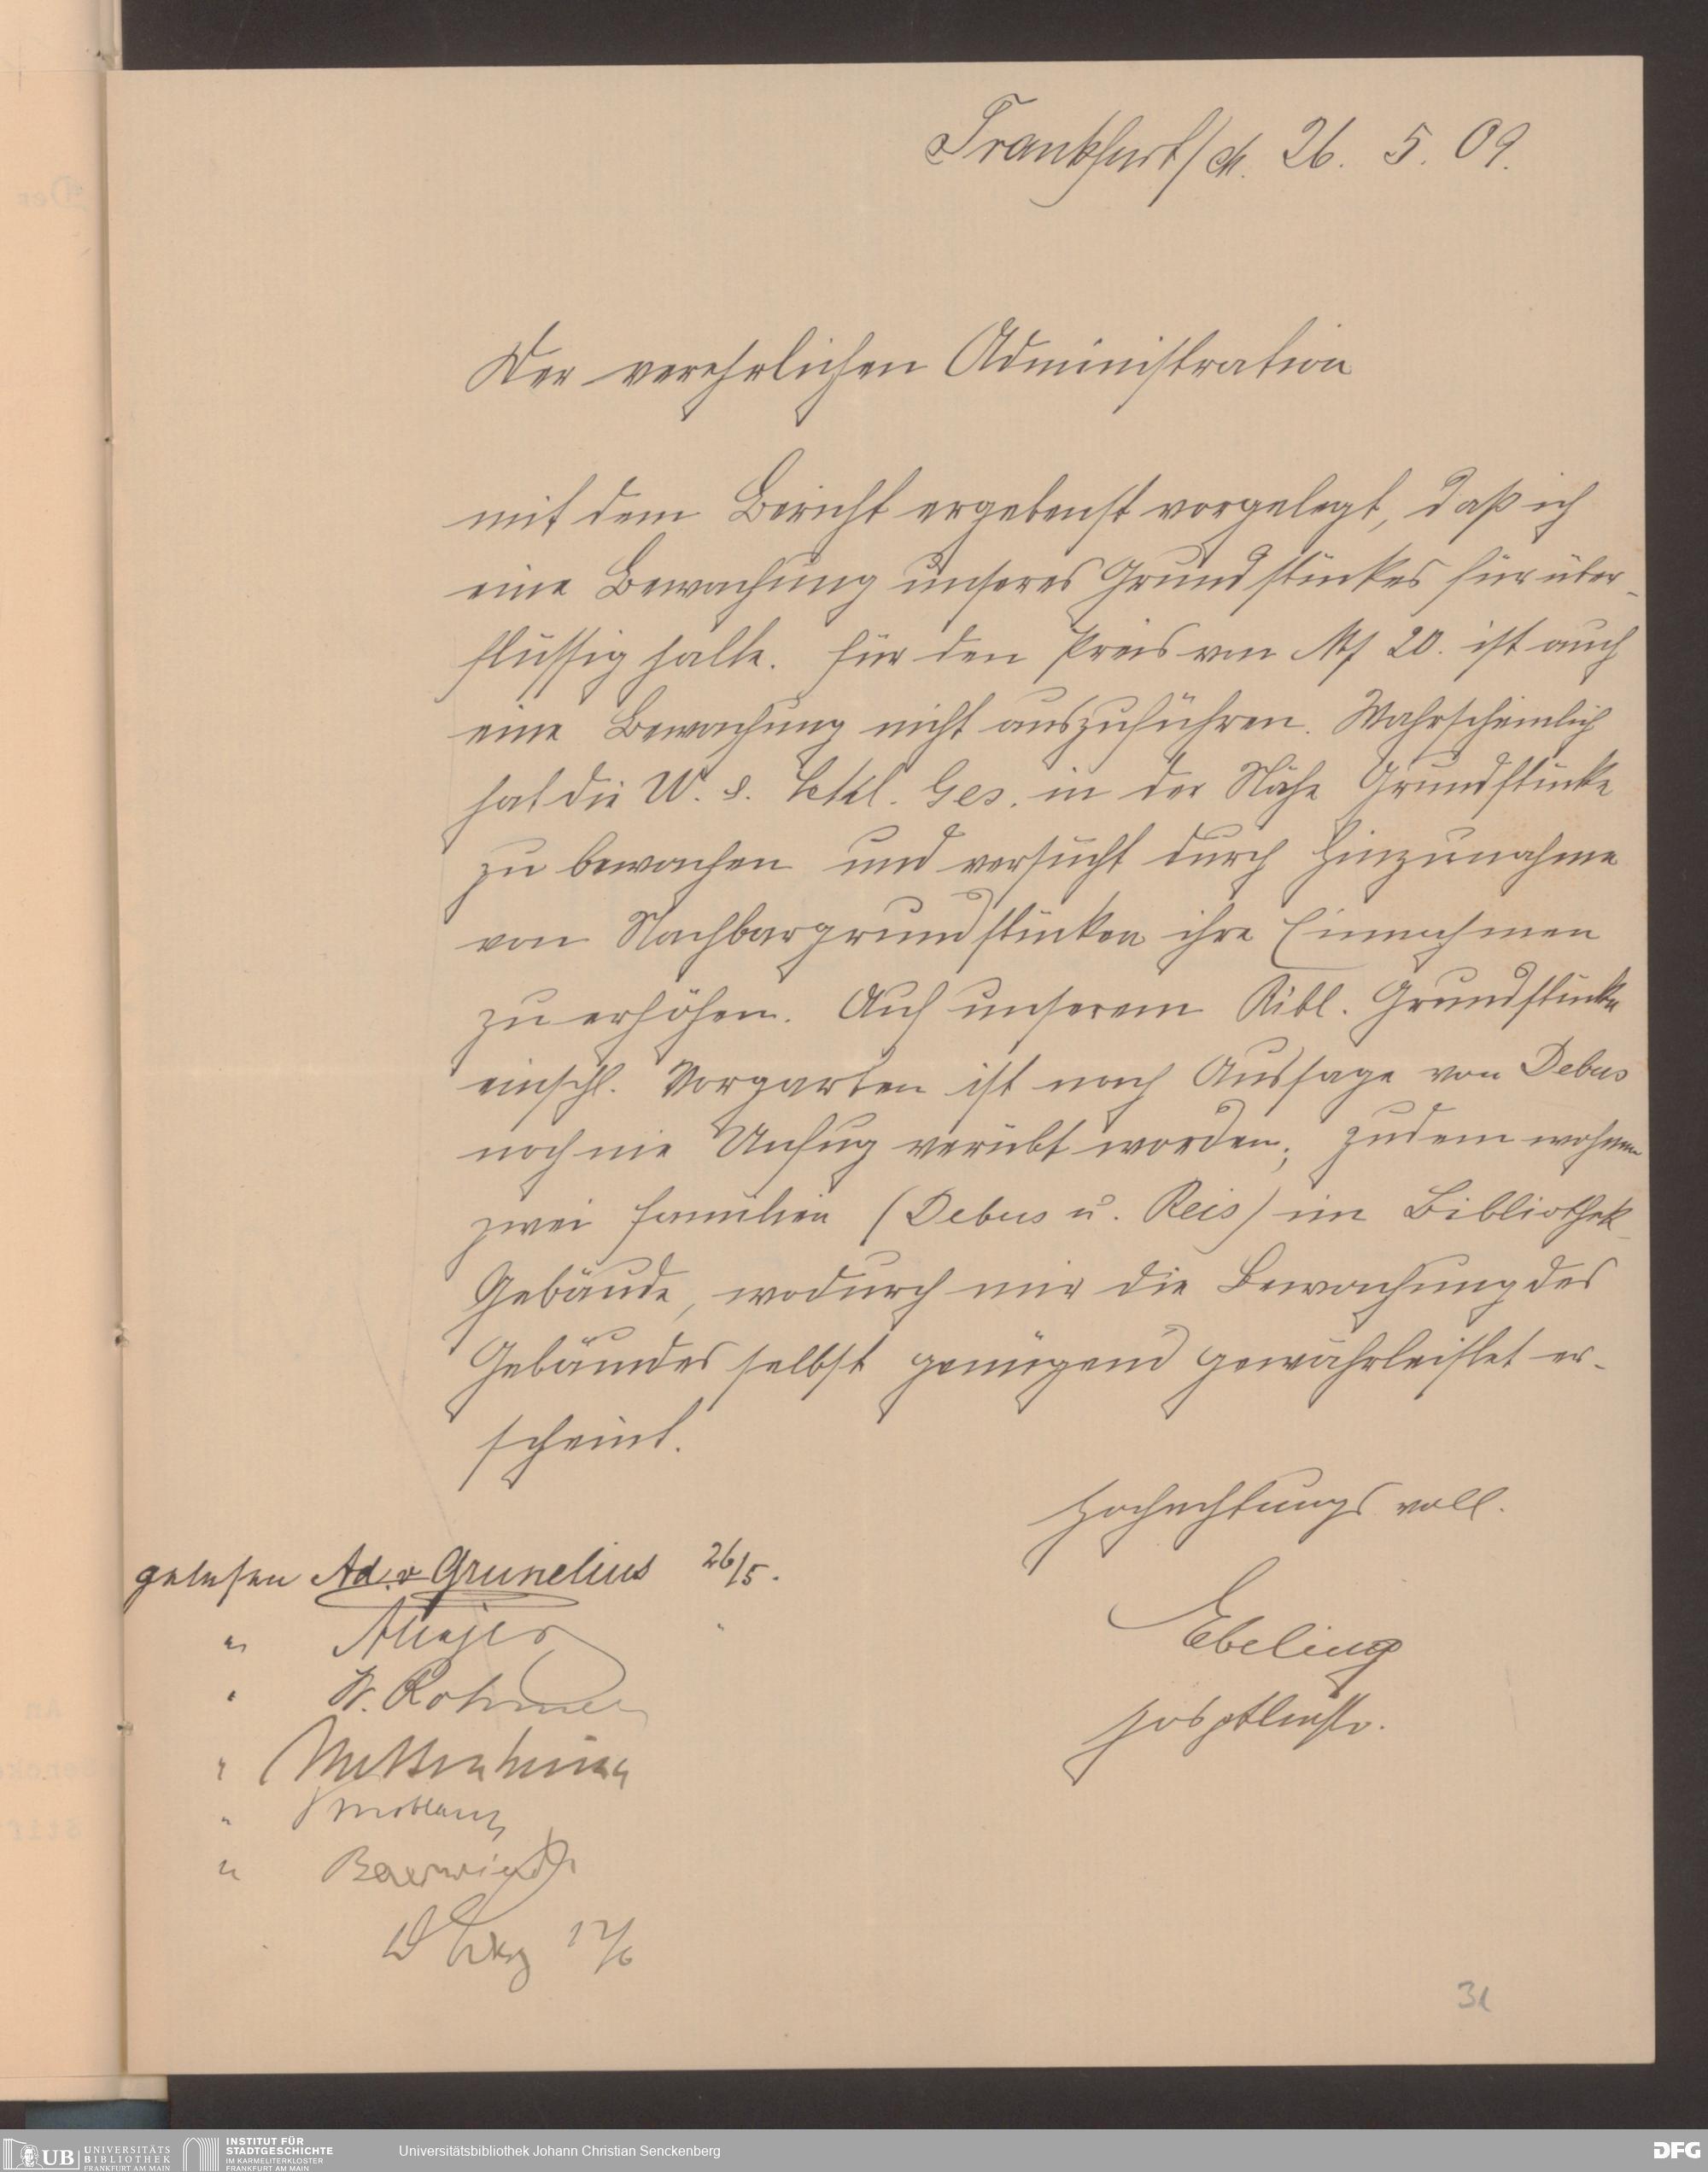 Frankfurt/M. 26. 5. 09.
Der verehrlichen Administration
mit dem Bericht ergebenst vorgelegt, daß ich
eine Bewachung unseres Grundstückes für über-
flüssig halte. Für den Preis von Mk 20. ist auch
eine Bewachung nicht auszuführen. Wahrscheinlich
hat die W. u. Ges. in der Nähe Grundstücke
zu bewachen und versucht durch Hinzunahme
von Nachbargrundstücken ihre Einnahmen
zu erhöhen. Auf unserem Bibl. Grundstücke
einschl. Vorgarten ist nach Aussage von Debus
noch nie Unfug verübt worden; zudem wohnen
zwei Familien (Debus u. Reis) im Bibliothek-
Gebäude, wodurch mir die Bewachung des
Gebäudes selbst genügend gewährleistet er-
scheint.
Hochachtungsvoll.
Ebeling
Hosptlmstr.
gelesen Ad. v Grunelius 26/5.
"
" W. Rohmer
" Mettenheimer
" Knoblauch
" Baerwindt
12/6
31
UB UNIVERSITÄTS
BIBLIOTHEK
FRANKFURT AM MAIN
INSTITUT FÜR
STADTGESCHICHTE
IM KARMELITERKLOSTER
FRANKFURT AM MAIN
Universitätsbibliothek Johann Christian Senckenberg
DFG